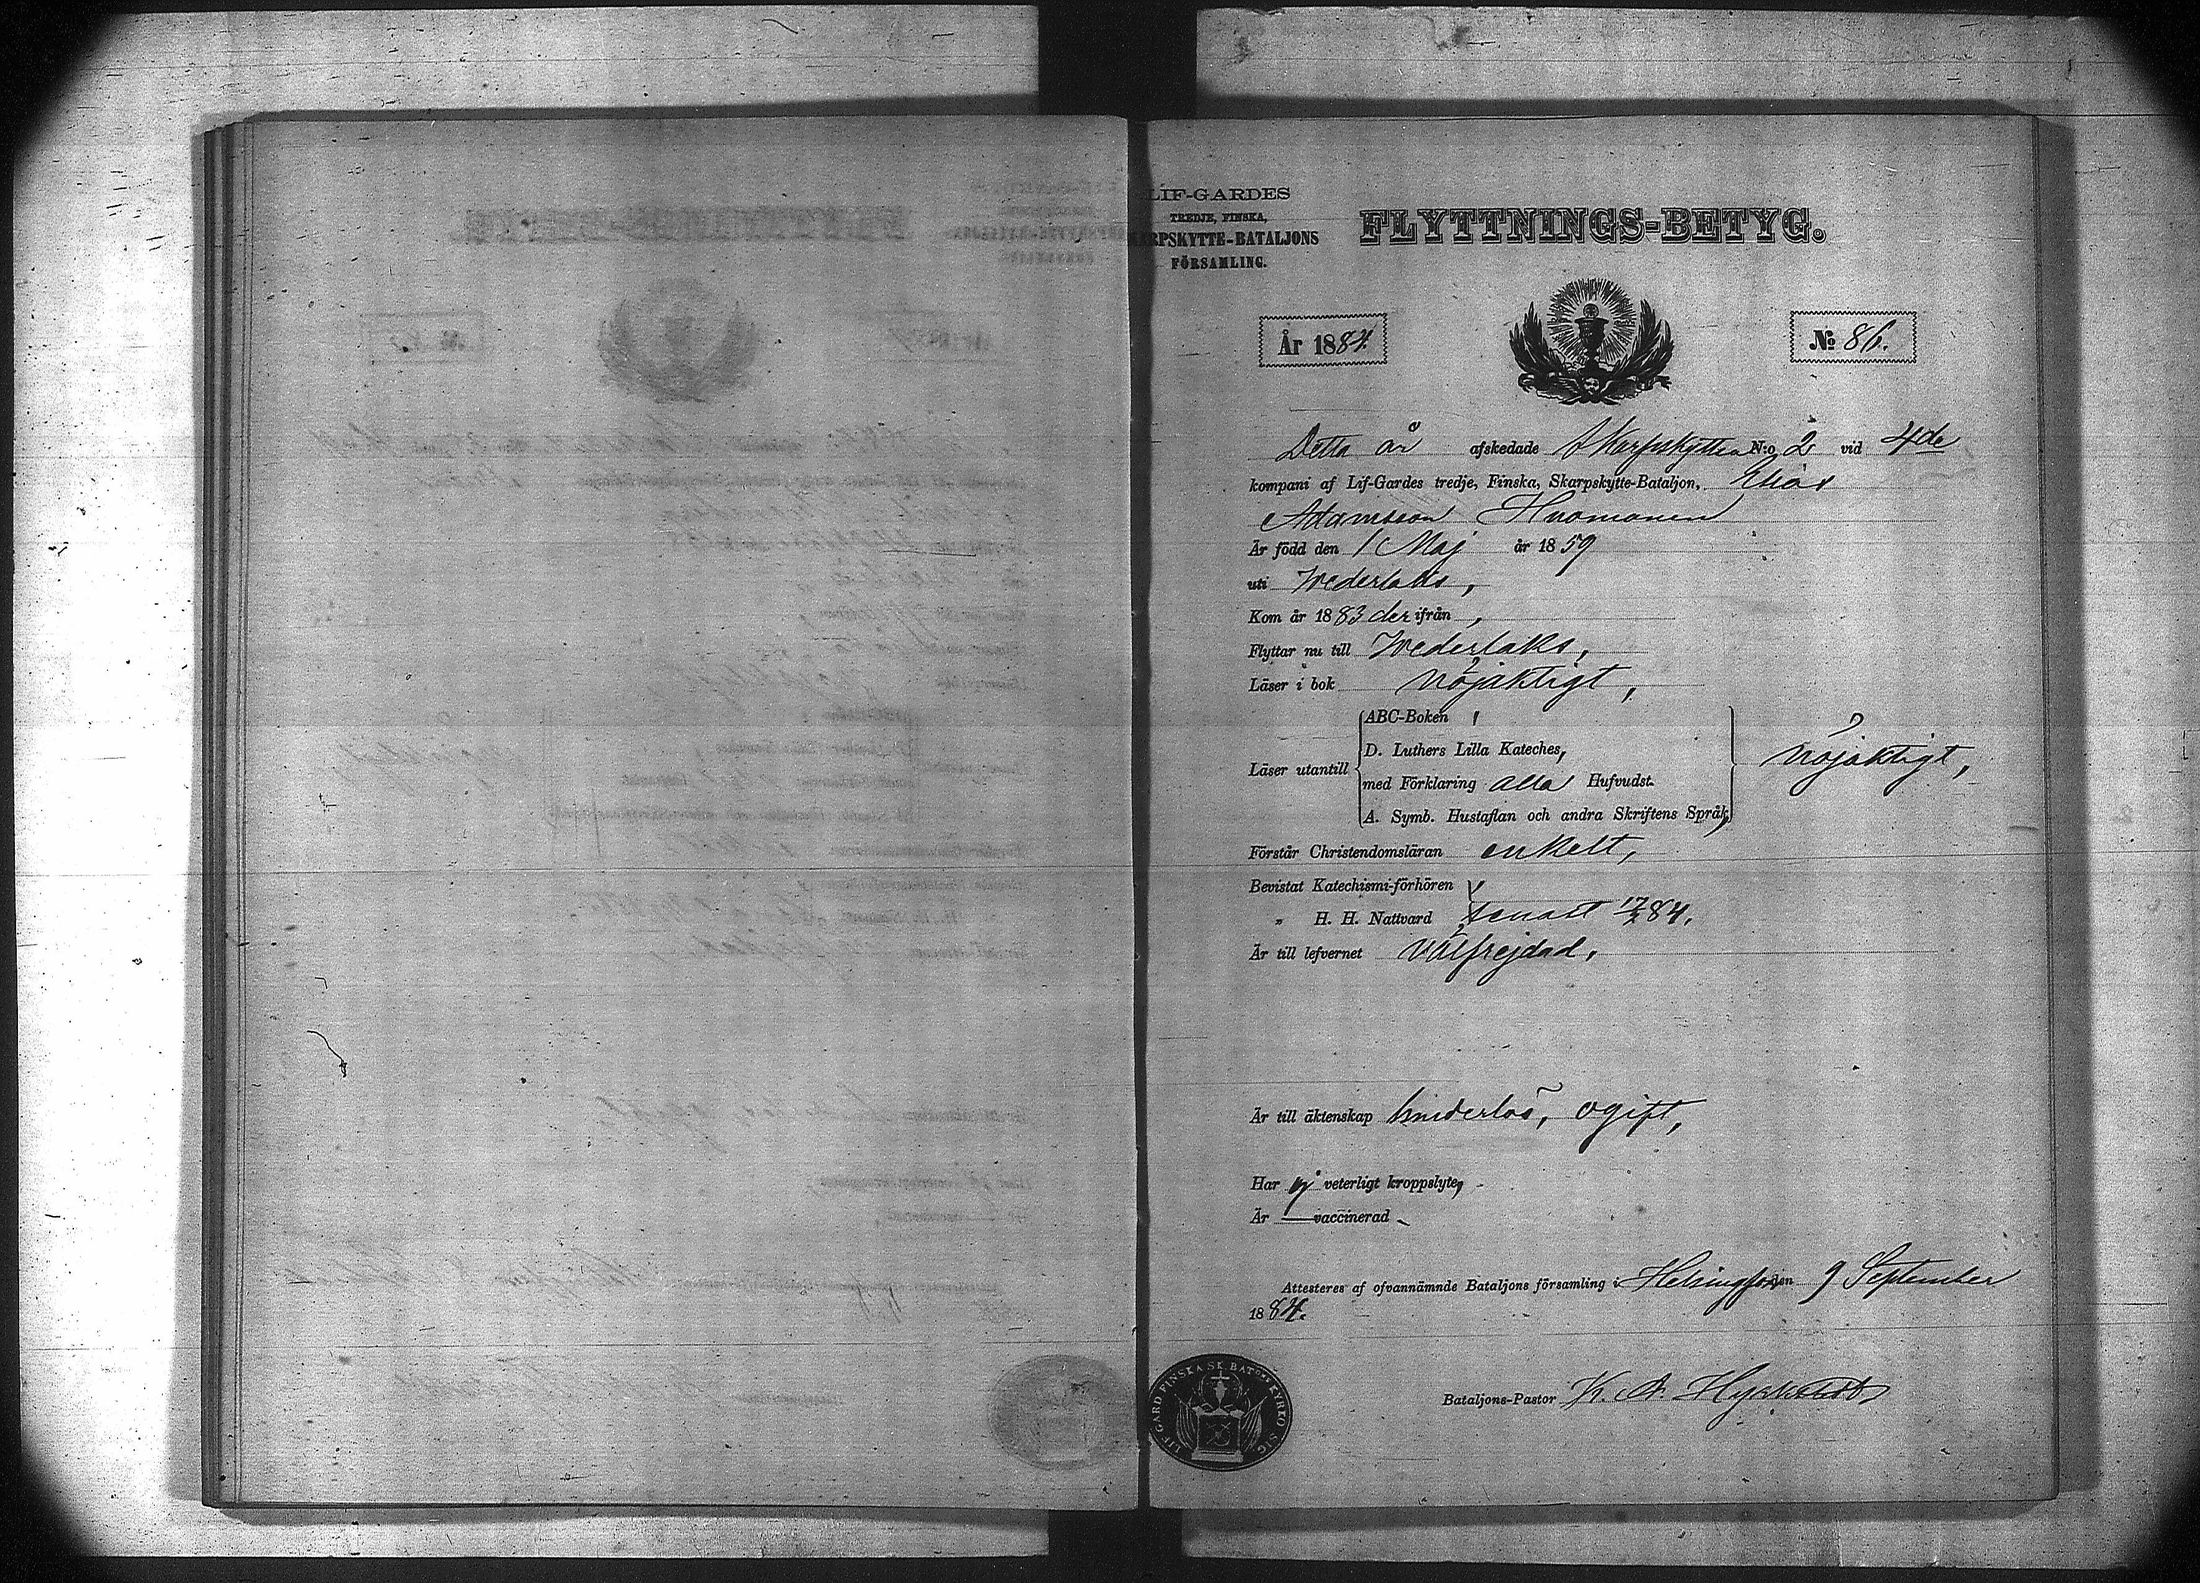 LIF-GARDES
TREDJE, FINSKA,
RPSKYTTE-BATALJONS
FÖRSAMLING.
FLYTTNINGS-BETYG.
År 1884.
No 86.
Detta år afskedade Skarpskytten N:o 2 vid 4de
kompani af Lif-Gardes tredje, Finska, Skarpskytte-Bataljon, Elias
Adamsson Huomonen
Är född den 1 Maj år 1859
uti Wederlaks,
Kom år 1883 der ifrån,
Flyttar nu till Wederlaks,
Läser i bok nöjaktigt,
Läser utantill
ABC-Boken,
D. Luthers Lilla Kateches,
med Förklaring alla Hufvudst.
A. Symb. Hustaflan och andra Skriftens Språk,
nöjaktigt,
Förstår Christendomsläran enkelt,
Bevistat Katechismi-förhören
„ H. H. Nattvard senast 17/2 84.
Är till lefvernet välfrejdad.
Är till äktenskap hinderlös, ogift,
Har ej veterligt kroppslyte,
Är — vaccinerad
Attesteres af ofvannämnde Bataljons församling i Helsingfors den 9 September
1884.
Bataljons-Pastor K. A.
LIF GARD FINSKA SK. BAT:ONS KYRKO SIG.